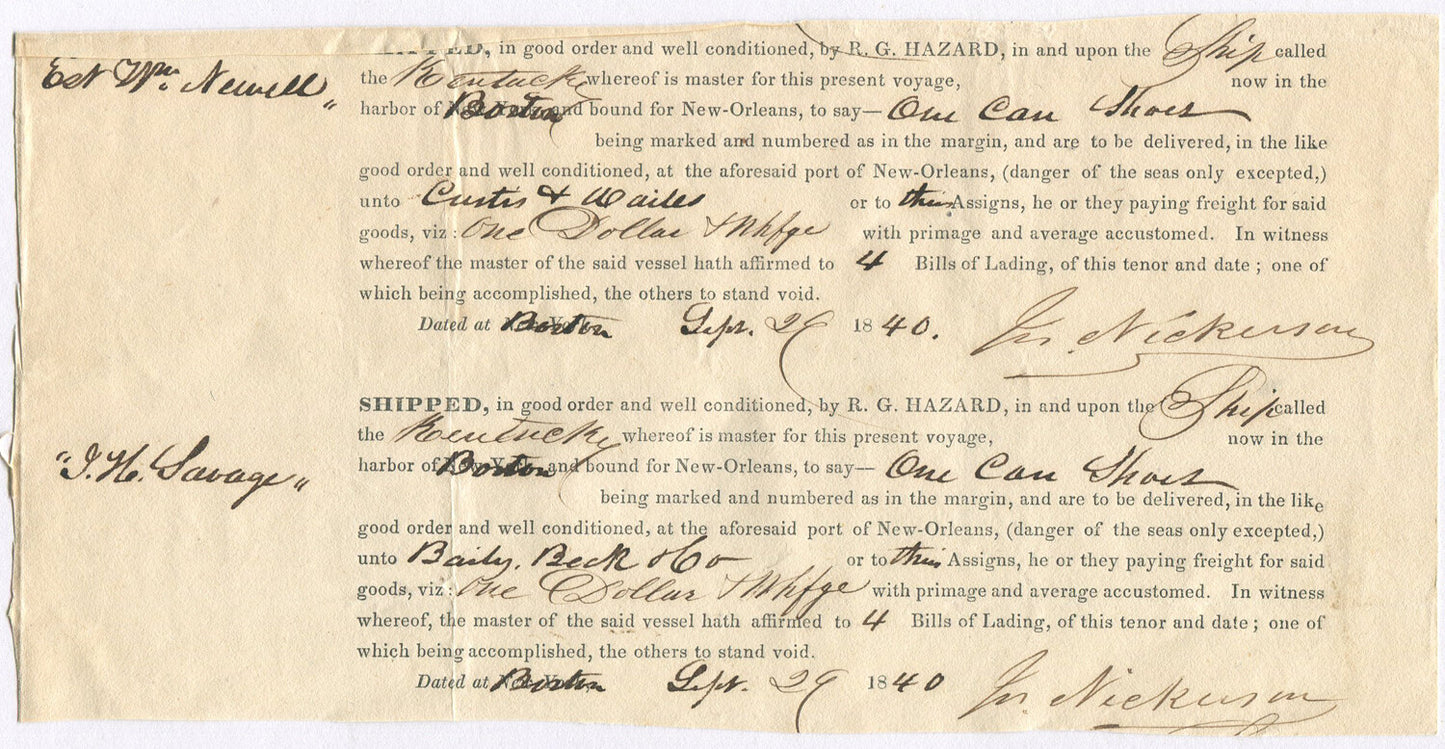 SHIPPED, in good order and well conditioned, by R. G. HAZARD, in and upon the Ship called
Est Wm. Newell "
the Kentucky whereof is master for this present voyage, now in the
harbor of Boston and bound for New-Orleans, to say— One Case Shoes
being marked and numbered as in the margin, and are to be delivered, in the like
good order and well conditioned, at the aforesaid port of New-Orleans, (danger of the seas only excepted,)
unto Curtis & or to their Assigns, he or they paying freight for said
goods, viz: One Dollar & Whfge with primage and average accustomed. In witness
whereof the master of the said vessel hath affirmed to 4 Bills of Lading, of this tenor and date; one of
which being accomplished, the others to stand void.
Dated at Boston Sept. 29 1840. Jn. Nickerson
SHIPPED, in good order and well conditioned, by R. G. HAZARD, in and upon the Ship called
the Kentucky whereof is master for this present voyage, now in the
harbor of Boston and bound for New-Orleans, to say— One Case Shoes
"J. H. Savage "
being marked and numbered as in the margin, and are to be delivered, in the like
good order and well conditioned, at the aforesaid port of New-Orleans, (danger of the seas only excepted,)
unto Baily, Beck & Co or to their Assigns, he or they paying freight for said
goods, viz: One Dollar & Whfge with primage and average accustomed. In witness
whereof, the master of the said vessel hath affirmed to 4 Bills of Lading, of this tenor and date; one of
which being accomplished, the others to stand void.
Dated at Boston Sept. 29 1840 Jn. Nickerson